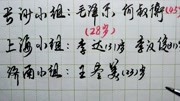 长沙小组:毛泽东,何叔衡(45)
(28岁)
上海小组:李达(31)岁 李汉俊
济南小组:王尽美(23)岁